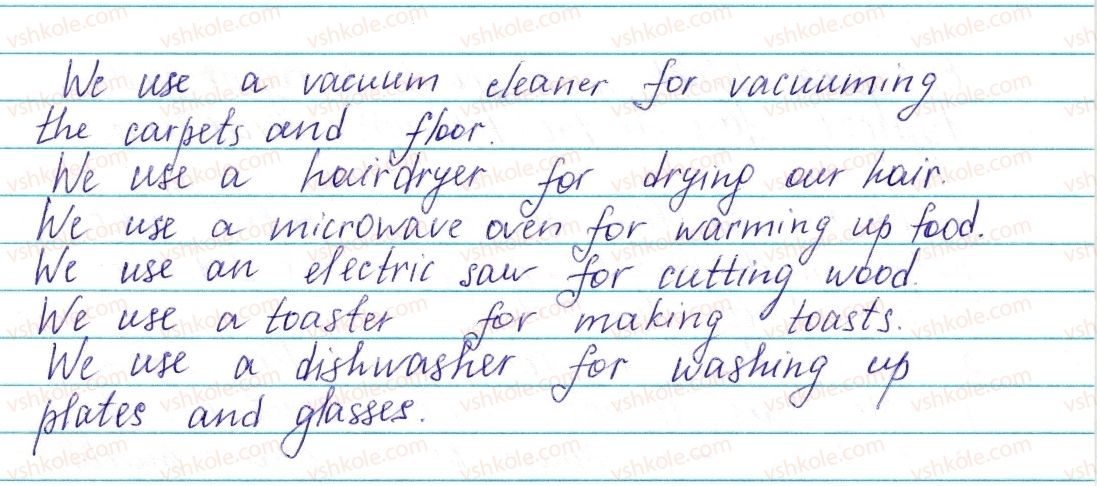 We use a vacuum cleaner for vacuuming
the carpets and floor.
We use a hairdryer for drying our hair.
We use a microwave oven for warming up food.
We use an electric saw for cutting wood.
We use a toaster for making toasts.
We use a dishwasher for washing up
plates and glasses.